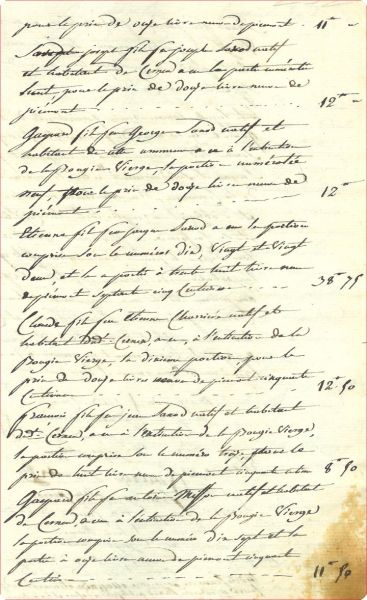 pour le prix de onze livre neuve de piemont . 11 "
Joseph fils feu Joseph Savod natif
et habitant de Cernex a eu la portion numéro
huit, pour le prix de douze livre neuve de
piémont . . . . 12 "
Gaspard fils feu George Savod natif et
habitant de cette commune a eu à l'extinction
de la Bougie Vierge, la portion numérotée
neuf pour le prix de douze livre neuve de
piémont . . . . 12 "
Etienne fils feu Savod a eu la portion
comprise sou le numéro dix, Vingt et Vingt
deux, et la a portée à trente huit livre neuve
de piémont septante cinq Centimes . 38 " 75
Claude fils feu Etienne natif et
habitant a eu, à l'extinction de la
Bougie Vierge, la dixieme portion pour le
prix de douze livres neuve de piemont cinquante
Centimes . . . . 12 " 50
francois fils feu Savod natif et habitant
a eu à l'extinction de la Bougie Vierge,
la portion comprise sou le numero trois, pour le
prix de huit livre neuve de piemont cinquante 8 " 50
Gaspard fils feu natif et habitant
de a eu à l'extinction de la Bougie Vierge
la portion comprise sou le numero dix sept et la
portée à onze livre neuve de piemont cinquante
Centimes . . . . 11 " 50